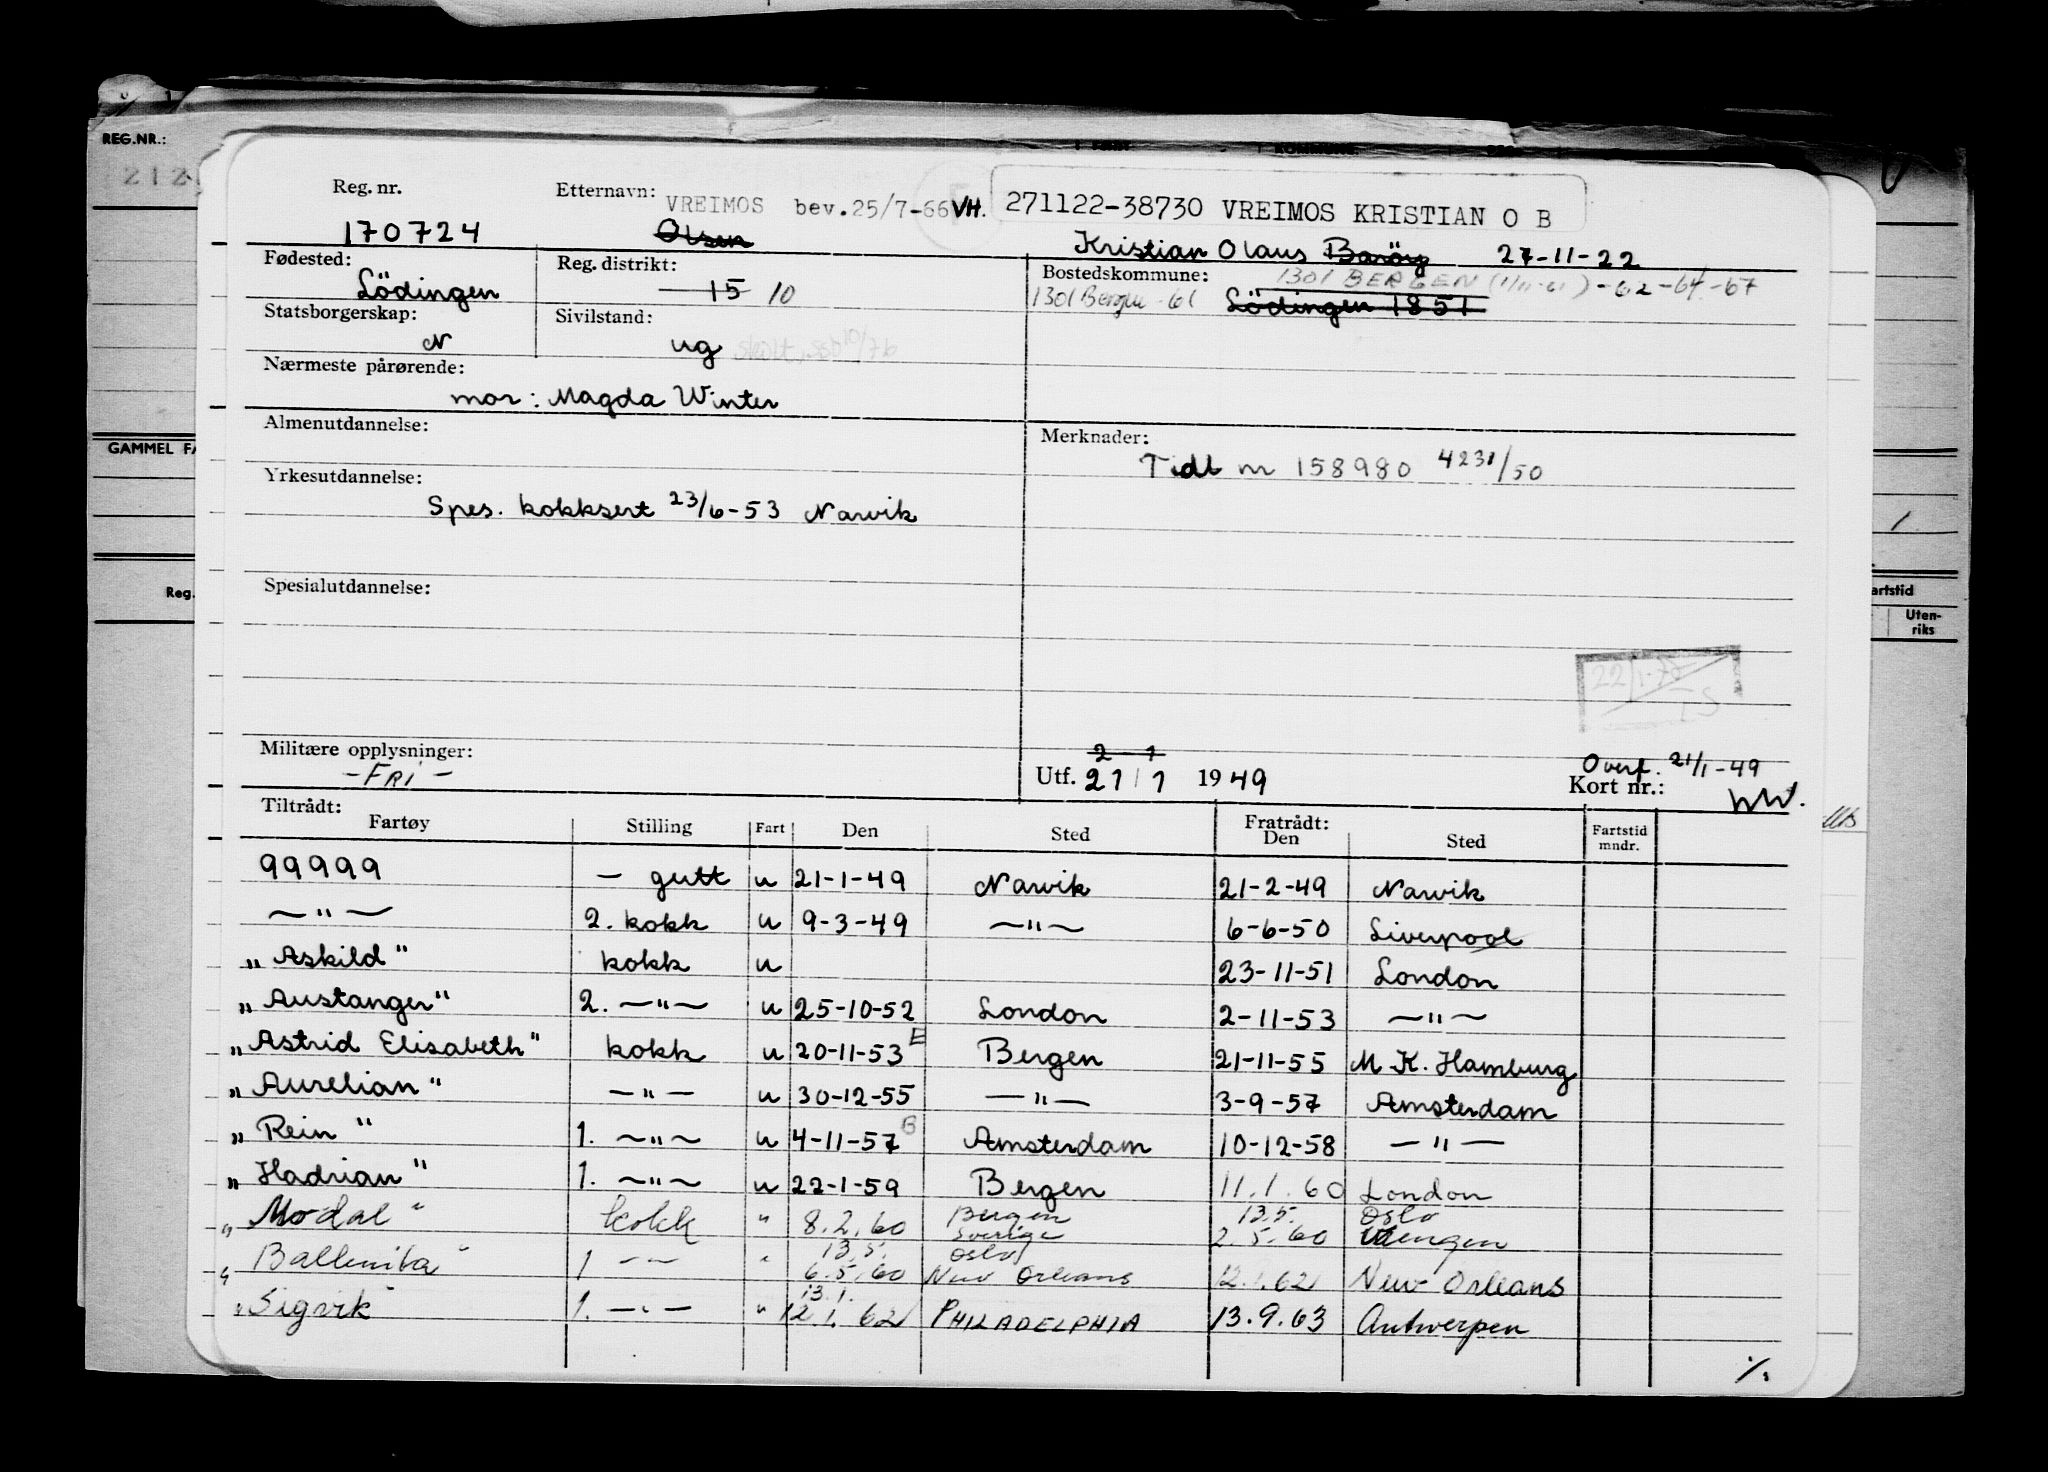 REG.NR.:
212
Reg. nr.
170724
Etternavn: VREIMOS bev. 25/7-66 VH.
Olsen
F
271122-38730 VREIMOS KRISTIAN O B
Kristian Olaus Barörg 27-11-22
Fødested:
Lödingen
Reg. distrikt:
15 10
Bostedskommune: 1301 BERGEN (1/11-61) -62 -64 -67
1301 Bergen -61 Lödingen 1851
Statsborgerskap:
N
Sivilstand:
ug
Nærmeste pårørende:
mor: Magda Winter
Almenutdannelse:
Merknader:
Tidl nr 158980 4231/50
GAMMEL FA
Yrkesutdannelse:
Spes. kokksert 23/6-53 Narvik
Spesialutdannelse:
Reg.
artstid
Uten-
riks
Militære opplysninger:
- FRI -
2 1
Utf. 21/1 1949
Overf. 21/1-49
Kort nr.: WW.
Tiltrådt:
Fartøy Stilling Fart Den Sted Fratrådt: Den Sted Fartstid mndr.
99999 — gutt u 21-1-49 Narvik 21-2-49 Narvik
—"— 2. kokk u 9-3-49 —"— 6-6-50 Liverpool
"Askild" kokk u 23-11-51 London
"Austanger" 2. —"— u 25-10-52 London 2-11-53 —"—
"Astrid Elisabeth" kokk u 20-11-53 E Bergen 21-11-55 M. K. Hamburg
"Aurelian" —"— u 30-12-55 —"— 3-9-57 Amsterdam
"Rein" 1. —"— u 4-11-57 B Amsterdam 10-12-58 —"—
"Hadrian" 1. —"— u 22-1-59 Bergen 11.1.60 London
"Modal" kokk " 8.2.60 Bergen Sverige 13.5. 2.5.60 Oslo
Ballenita" 1 —"— " 13.5. 6.5.60 Oslo New Orleans 12.1.62 New Orleans
"Sigvik" 1. —"— " 13.1. 12.1.62 PHILADELPHIA 13.9.63 Antwerpen
./.